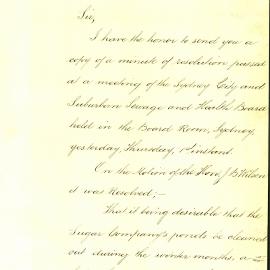 Sir,
I have the honor to send you a
copy of a minute of resolution passed
at a meeting of the Sydney City and
Suburban Sewage and Health Board
held in the Board Room, Sydney,
yesterday, Thursday, 1st instant.
On the Motion of the Hon. J B Wilson
it was Resolved;–
That it being desirable that the
Sugar Company's ponds be cleaned
out during the winter months, a